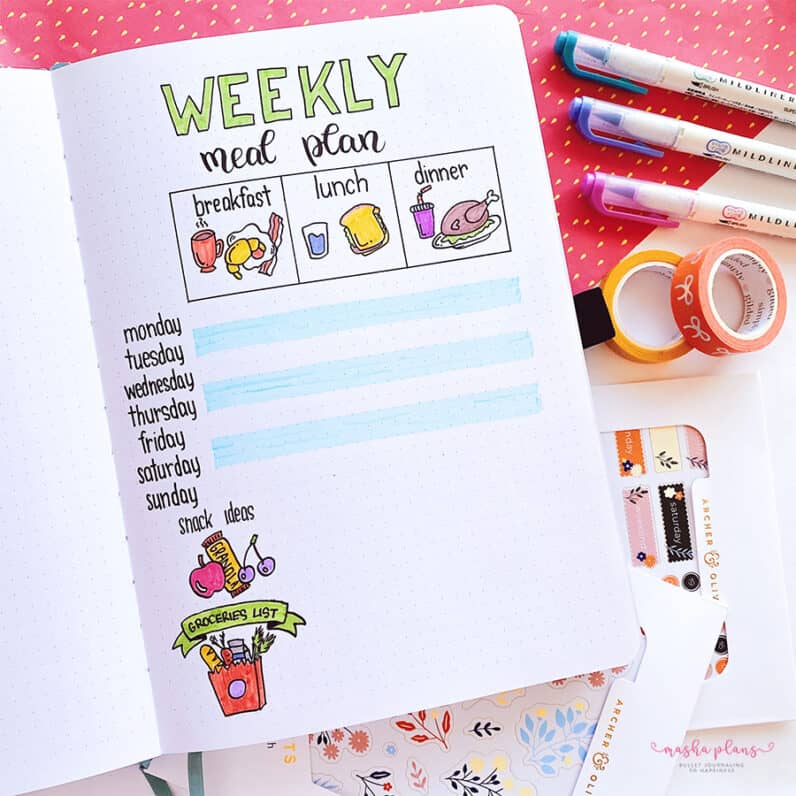 WEEKLY
meal plan
breakfast
lunch
dinner
monday
tuesday
wednesday
thursday
friday
saturday
sunday
snack ideas
GRANOLA
GROCERIES LIST
MILDLINER
BRUSH
MILDLINER
BRUSH
MILDLINER
simply
gilded
saturday
ARCHER & OLIV
ARCHER & OLIV
masha plans
BULLET JOURNALING
TO HAPPINESS